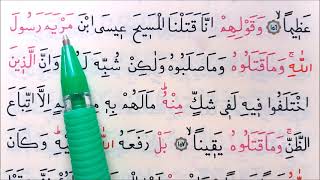 عَظٖيمًاۙ ﴿١٥٦﴾ وَقَوْلِهِمْ اِنَّا قَتَلْنَا الْمَسٖيحَ عٖيسَى ابْنَ مَرْيَمَ رَسُولَ
اللّٰهِۚ وَمَا قَتَلُوهُ وَمَا صَلَبُوهُ وَلٰكِنْ شُبِّهَ لَهُمْؕ وَاِنَّ الَّذٖينَ
اخْتَلَفُوا فٖيهِ لَفٖى شَكٍّ مِنْهُؕ مَا لَهُمْ بِهٖ مِنْ عِلْمٍ اِلَّا اتِّبَاعَ
الظَّنِّۚ وَمَا قَتَلُوهُ يَقٖينًاۙ ﴿١٥٧﴾ بَلْ رَفَعَهُ اللّٰهُ اِلَيْهِؕ وَكَانَ